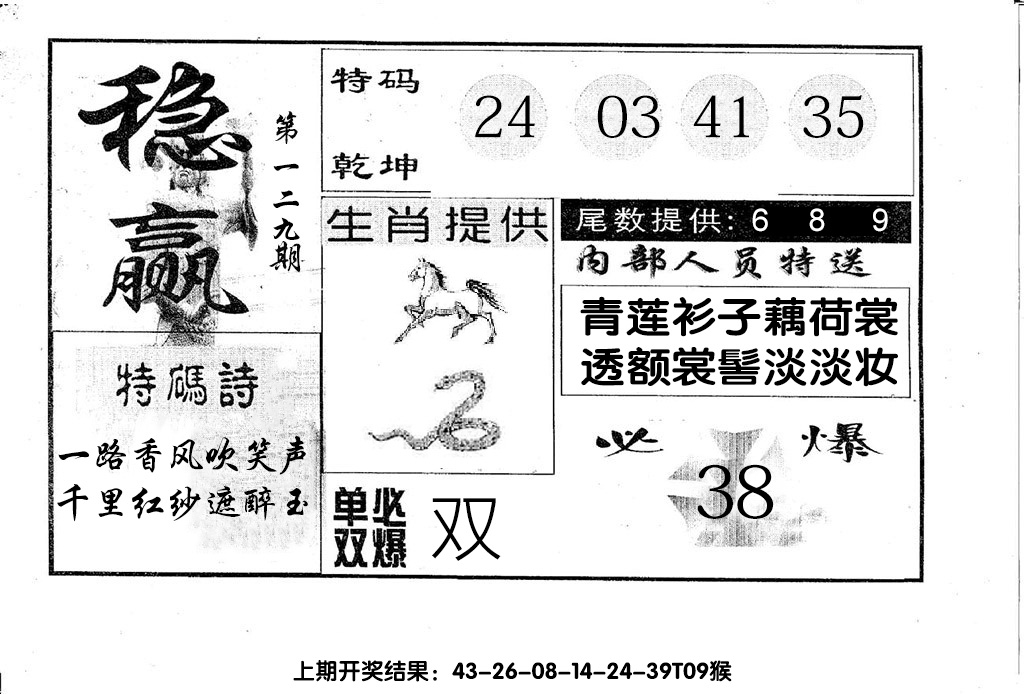 稳赢
第一二九期
特码诗
一路香风吹笑声
千里红纱遮醉玉
特码
乾坤
24 03 41 35
生肖提供
单双必爆
双
尾数提供: 6 8 9
内部人员特送
青莲衫子藕荷裳
透额裳髻淡淡妆
必爆
38
上期开奖结果：43-26-08-14-24-39T09猴